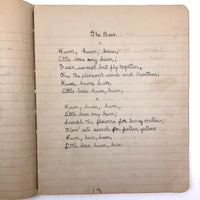 The Bees
1
Hum, hum, hum,
Little bees say hum,
Fear us not but fly together,
O'er the pleasant wood and heather,
Hum, hum, hum
Little bees hum, hum,
2
Hum, hum, hum,
Little bees say hum;
Search the flowers for honey mellow,
search for pollen yellow
Hum, hum, hum
Little bees hum, hum.